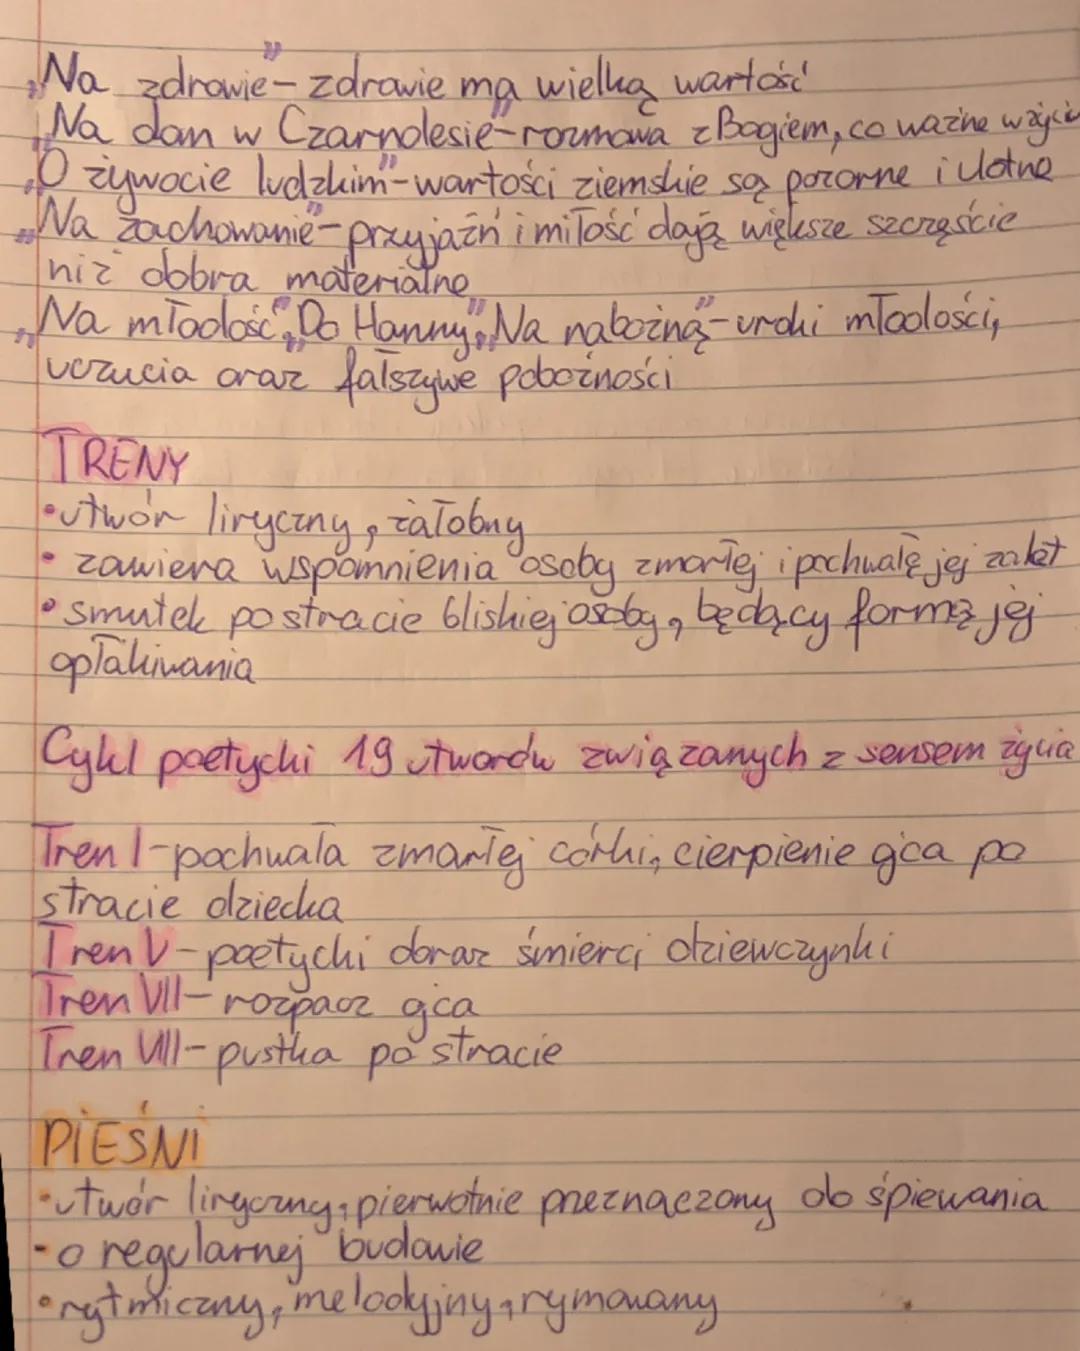 „Na zdrowie" - zdrowie ma wielką wartość
„Na dom w Czarnolesie" - rozmowa z Bogiem, co ważne w życiu
„O żywocie ludzkim" - wartości ziemskie są pozorne i ulotne
„Na zachowanie" - przyjaźń i miłość dają większe szczęście
niż dobra materialne
„Na młodość", „Do Hanny", „Na nabożną" - uroki młodości,
uczucia oraz fałszywe pobożności
TRENY
• utwór liryczny, żałobny
• zawiera wspomnienia osoby zmarłej i pochwałę jej zalet
• smutek po stracie bliskiej osoby, będący formą jej
opłakiwania
Cykl poetycki 19 utworów związanych z sensem życia
Tren I - pochwała zmarłej córki, cierpienie ojca po
stracie dziecka
Tren V - poetycki obraz śmierci dziewczynki
Tren VII - rozpacz ojca
Tren VIII - pustka po stracie
PIEŚNI
• utwór liryczny, pierwotnie przeznaczony do śpiewania
• o regularnej budowie
• rytmiczny, melodyjny, rymowany